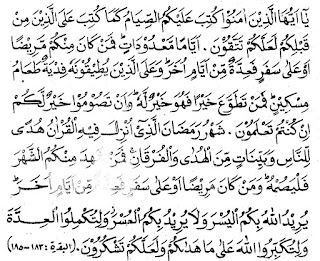 يَا أَيُّهَا الَّذِينَ اٰمَنُوْا كُتِبَ عَلَيْكُمُ الصِّيَامُ كَمَا كُتِبَ عَلَى الَّذِيْنَ مِنْ
قَبْلِكُمْ لَعَلَّكُمْ تَتَّقُوْنَ. اَيَّامًا مَّعْدُوْدَاتٍ فَمَنْ كَانَ مِنْكُمْ مَّرِيْضًا
اَوْعَلٰى سَفَرٍ فَعِدَّةٌ مِّنْ اَيَّامٍ اُخَرَ وَعَلَى الَّذِيْنَ يُطِيْقُوْنَهُ فِدْيَةٌ طَعَامُ
مِسْكِيْنٍ فَمَنْ تَطَوَّعَ خَيْرًا فَهُوَ خَيْرٌ لَّهُ وَاَنْ تَصُوْمُوْا خَيْرٌ لَّكُمْ
اِنْ كُنْتُمْ تَعْلَمُوْنَ. شَهْرُ رَمَضَانَ الَّذِيْ اُنْزِلَ فِيْهِ الْقُرْاٰنُ هُدًى
لِّلنَّاسِ وَبَيِّنَاتٍ مِّنَ الْهُدٰى وَالْفُرْقَانِ فَمَنْ شَهِدَ مِنْكُمُ الشَّهْرَ
فَلْيَصُمْهُ وَمَنْ كَانَ مَرِيْضًا اَوْعَلٰى سَفَرٍ فَعِدَّةٌ مِّنْ اَيَّامٍ اُخَرَ
يُرِيْدُ اللّٰهُ بِكُمُ الْيُسْرَ وَلَا يُرِيْدُ بِكُمُ الْعُسْرَ وَلِتُكْمِلُوا الْعِدَّةَ
وَلِتُكَبِّرُوا اللّٰهَ عَلٰى مَا هَدٰىكُمْ وَلَعَلَّكُمْ تَشْكُرُوْنَ. (البقرة: ١٨٣-١٨٥)